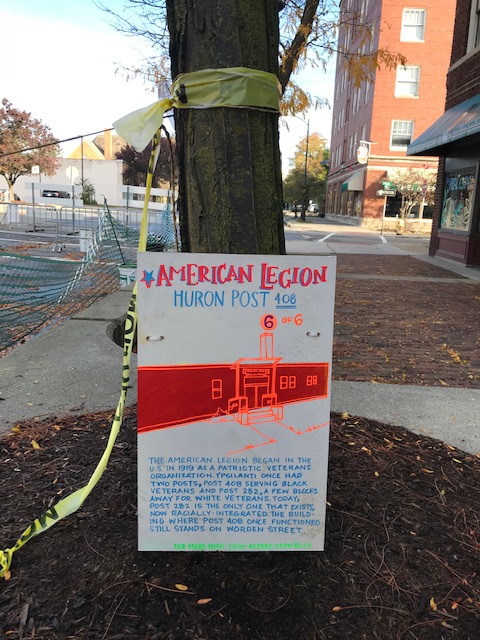 AMERICAN LEGION
HURON POST 408
6 OF 6
THE AMERICAN LEGION BEGAN IN THE
U.S. IN 1919 AS A PATRIOTIC VETERANS
ORGANIZATION. YPSILANTI ONCE HAD
TWO POSTS, POST 408 SERVING BLACK
VETERANS AND POST 282, A FEW BLOCKS
AWAY FOR WHITE VETERANS. TODAY,
POST 282 IS THE ONLY ONE THAT EXISTS,
NOW RACIALLY-INTEGRATED. THE BUILD-
ING WHERE POST 408 ONCE FUNCTIONED
STILL STANDS ON WORDEN STREET.
FOR MORE INFO: